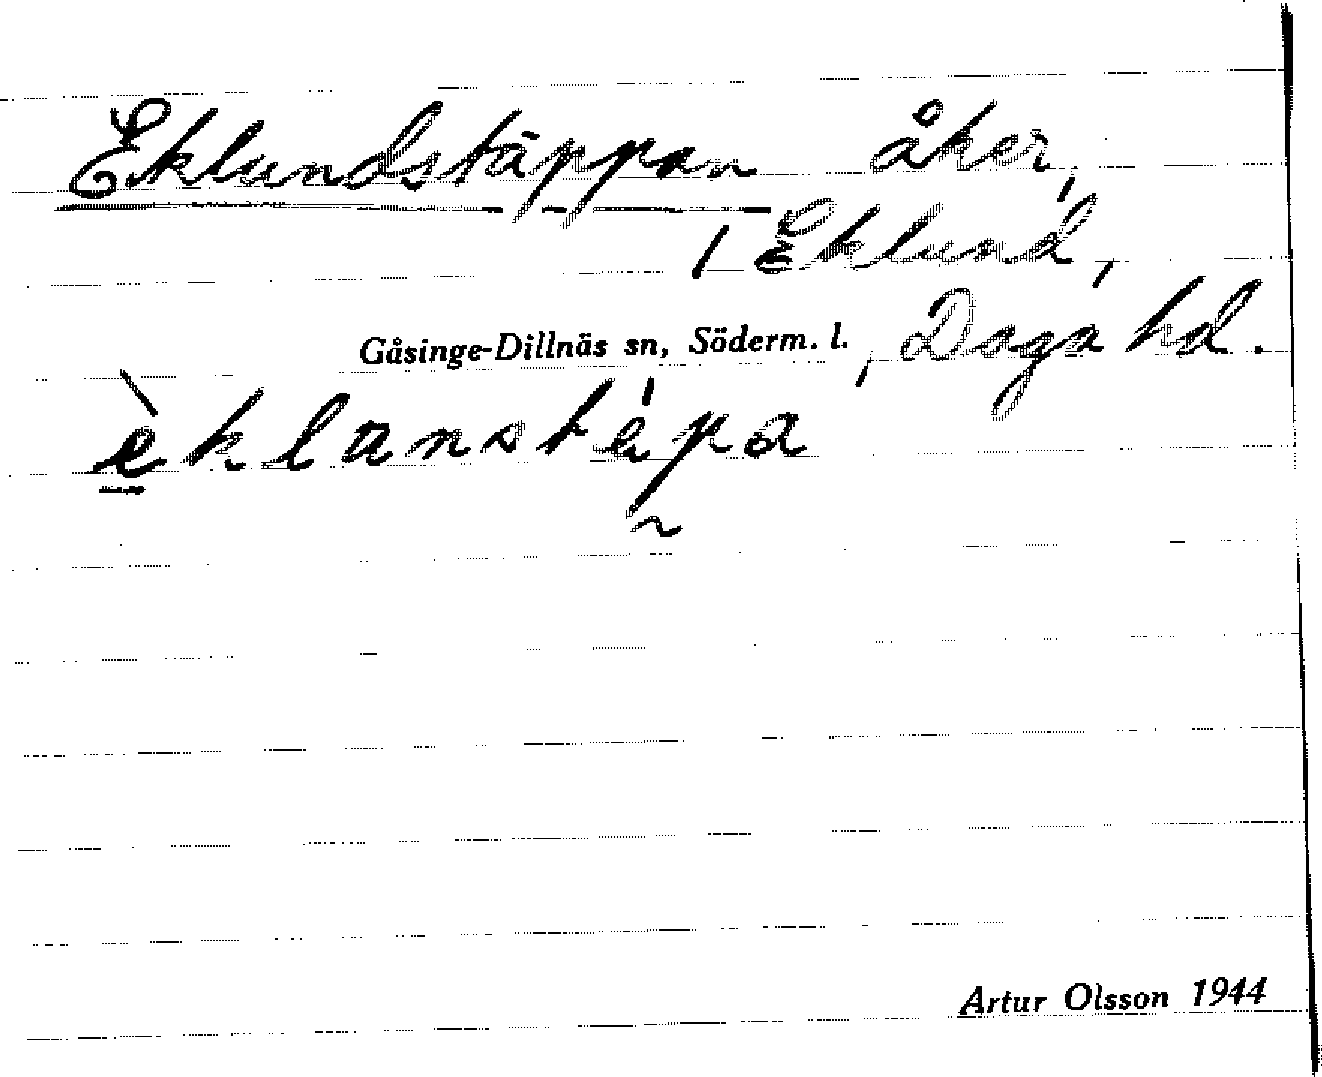 Eklundstäppan åker,
/ Eklund,
Gåsinge-Dillnäs sn, Söderm. l., Daga hd.
èklanstépa
Artur Olsson 1944